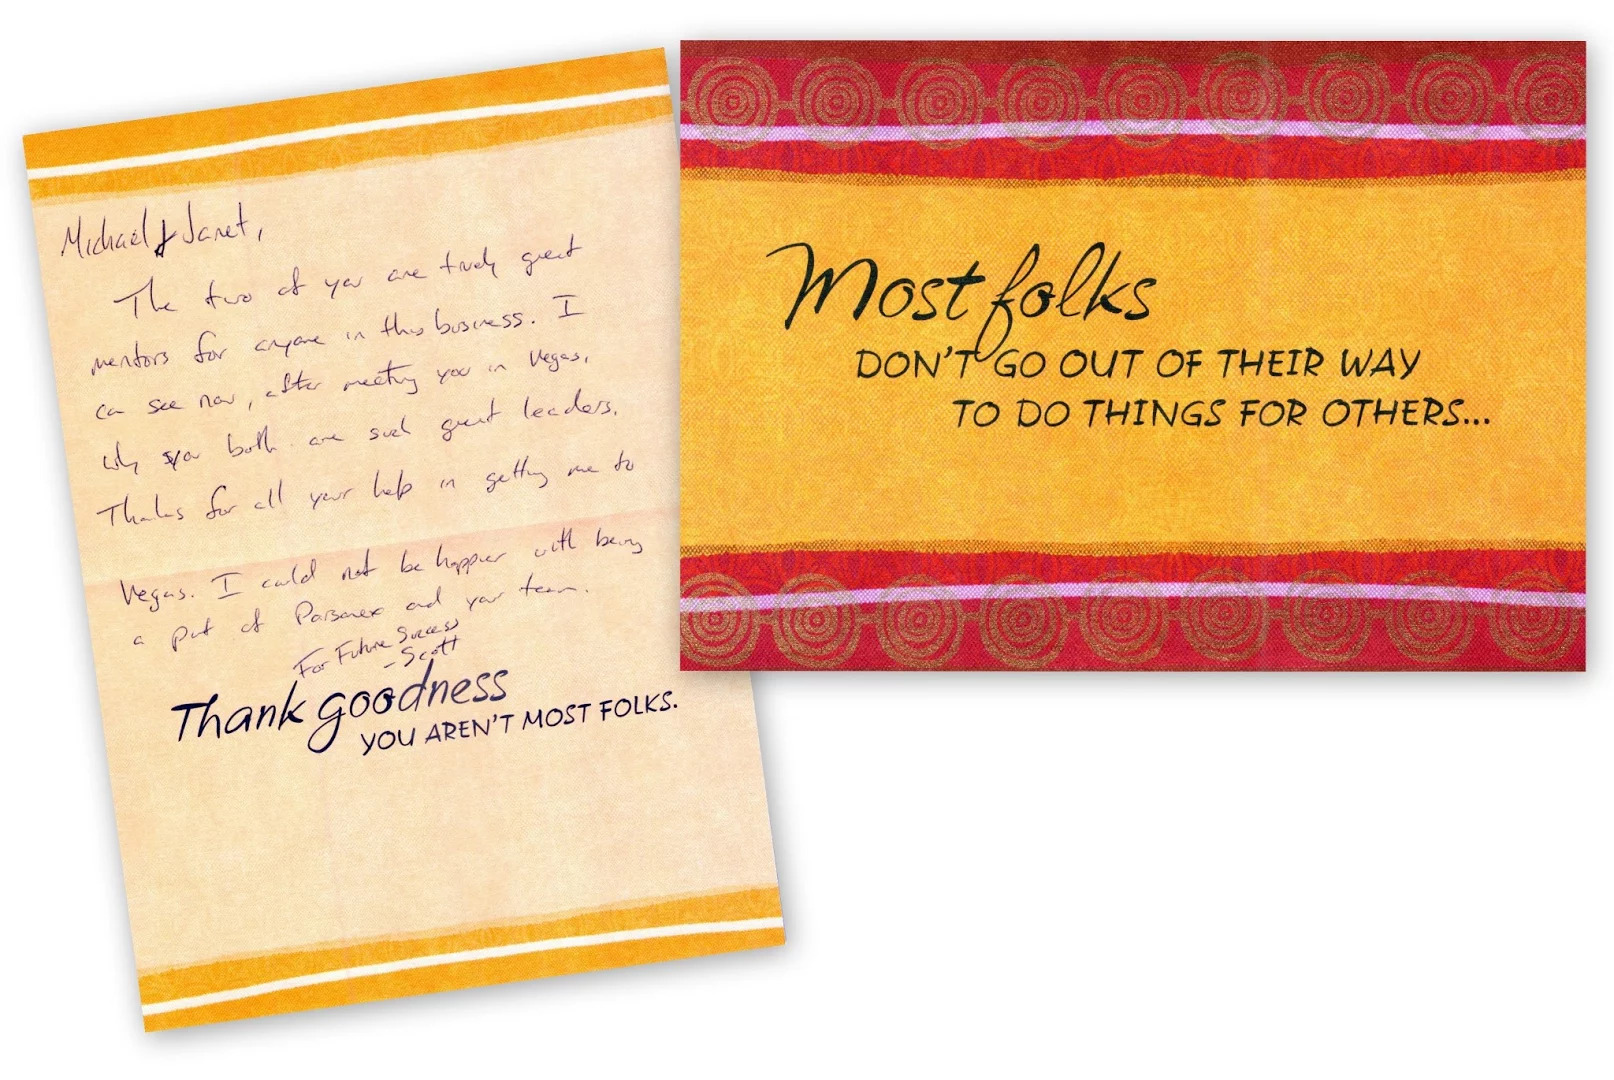 Michael & Janet,
The two of you are truly great
mentors for anyone in this business. I
can see now, after meeting you in Vegas,
why you both are such great leaders.
Thanks for all your help in getting me to
Vegas. I could not be happier with being
a part of and your team.
For Future Success
- Scott
Thank goodness
YOU AREN'T MOST FOLKS.
Most folks
DON'T GO OUT OF THEIR WAY
TO DO THINGS FOR OTHERS...